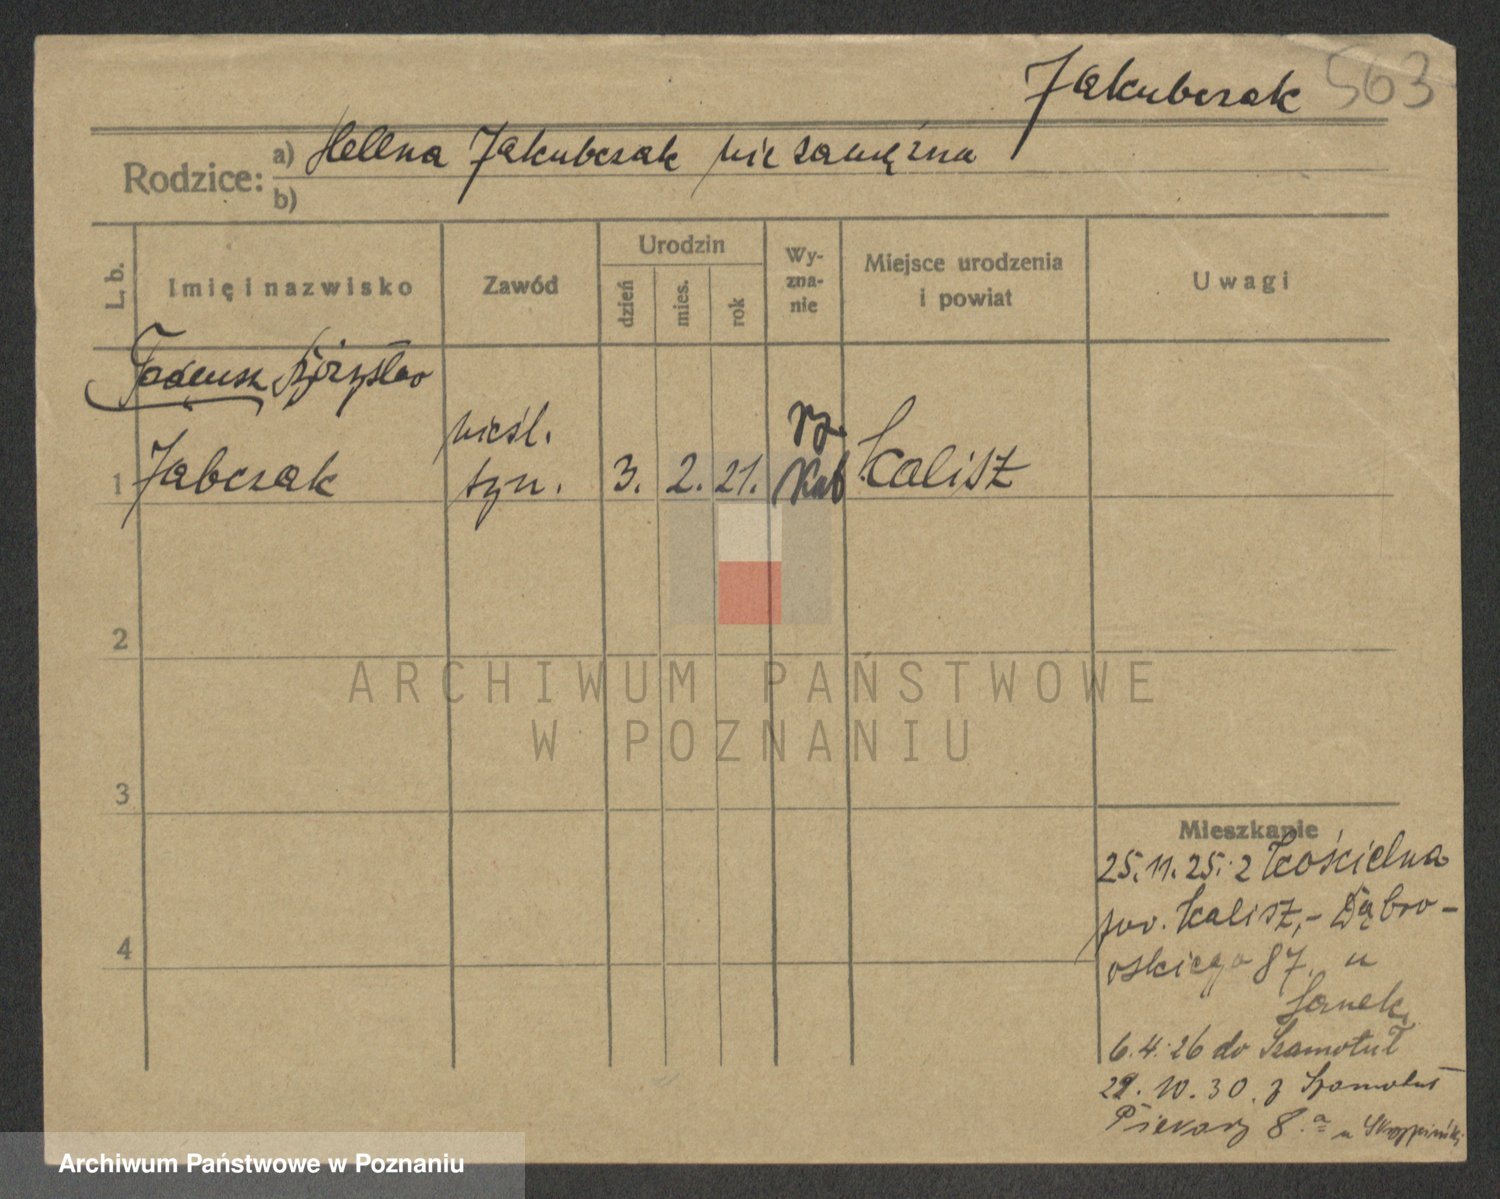 Jakubczak 563
Rodzice: a) Helena Jakubczak niezamężna
b)
L. b.
Imię i nazwisko
Zawód
Urodzin
dzień
mies.
rok
Wy-
zna-
nie
Miejsce urodzenia
i powiat
Uwagi
Tadeusz
1 Jabczak
nieśl.
syn.
3. 2. 21.
rz.
Kat
Kalisz
2
3
4
Mieszkanie
25.11.25. z Kościelna
pow. Kalisz,- Dąbro-
wskiego 87. u
Janek.
6.4.26 do Szamotuł
10.30. z Szamotuł
Piekary 8.a u
ARCHIWUM PAŃSTWOWE
W POZNANIU
Archiwum Państwowe w Poznaniu